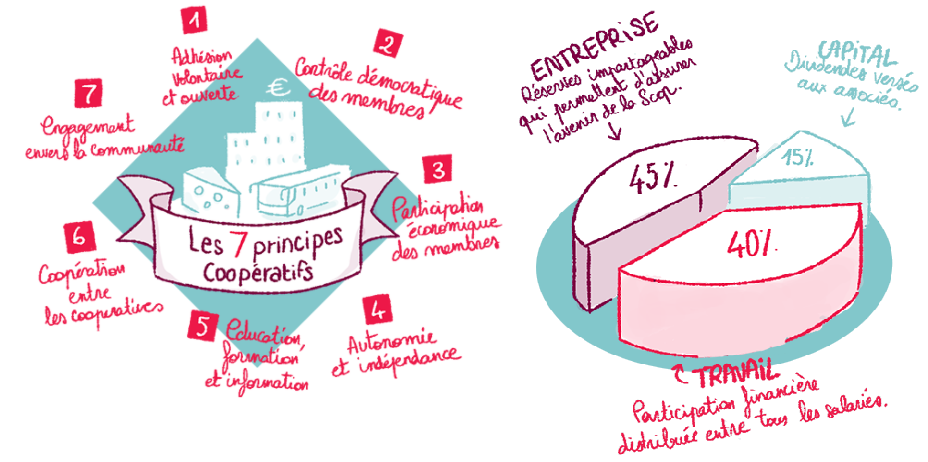 1
Adhésion
Volontaire
et ouverte
2
Contrôle démocratique
des membres
3
Participation
économique
des membres
4
Autonomie
et indépendance
5
Education,
formation,
et information
6
Coopération
entre
les cooperatives
7
Engagement
envers la communauté
€
Les 7 principes
Coopératifs
ENTREPRISE
Réserves impartageables
qui permettent d'assurer
l'avenir de la Scop.
45%
CAPITAL
Dividendes versés
aux associés.
15%
40%
TRAVAIL
Participation financière
distribuée entre tous les salariés.